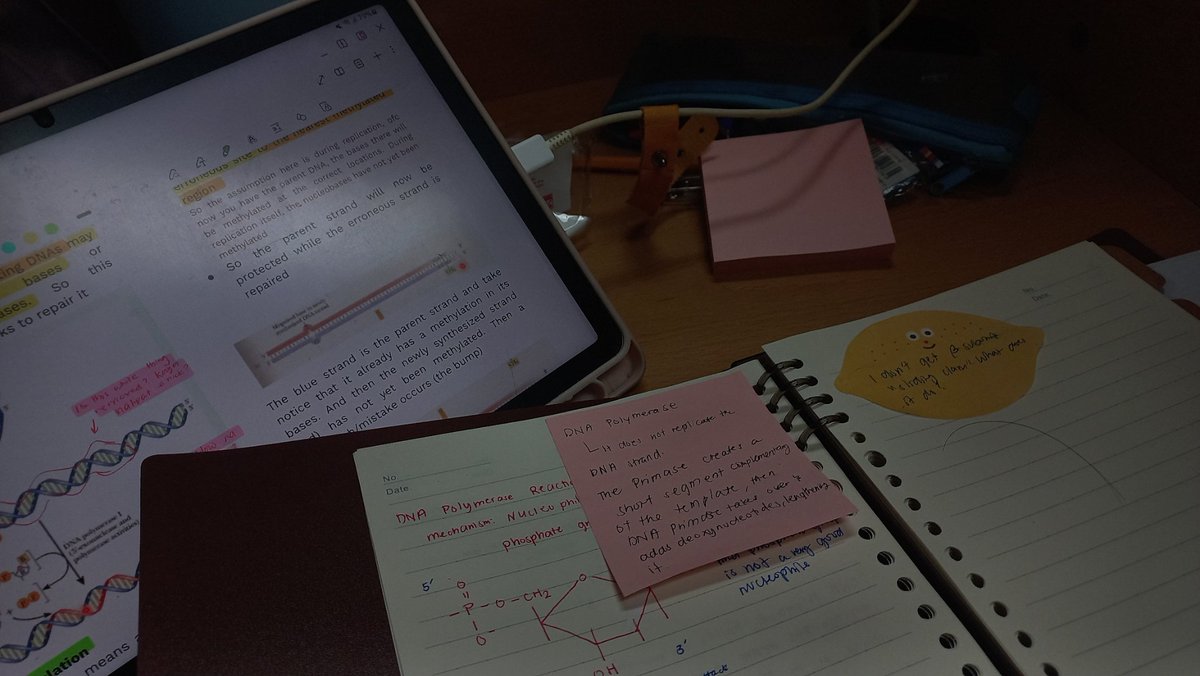 region
So the assumption here is during replication, ofc
now you have the parent DNA, the bases there will
be methylated at the correct locations. During
replication itself, the nucleobases have not yet been
methylated
• So the parent strand will now be
protected while the erroneous strand is
repaired
The blue strand is the parent strand and take
notice that it already has a methylation in its
bases. And then the newly synthesized strand
has not yet been methylated. Then a
mistake occurs (the bump)
ing DNAs may
bases or
ases. So this
ks to repair it
Is this whole thing
5'
3'
DNA polymerase I
(5'-exonuclease and
polymerase activities)
lation
means
No.
Date
DNA Polymerase
mechanism:
phosphate
5'
O
P - O - CH2
O
O
OH
3'
DNA Polymerase
It does not replicate the
DNA strand.
The Primase creates a
short segment complementary
of the template, then
DNA Primase takes over &
adds deoxynucleotides, lengthening
it.
is not a very good
nucleophile
No.
Date
I don't get β-subunit
"sliding clamp" what does
it do?